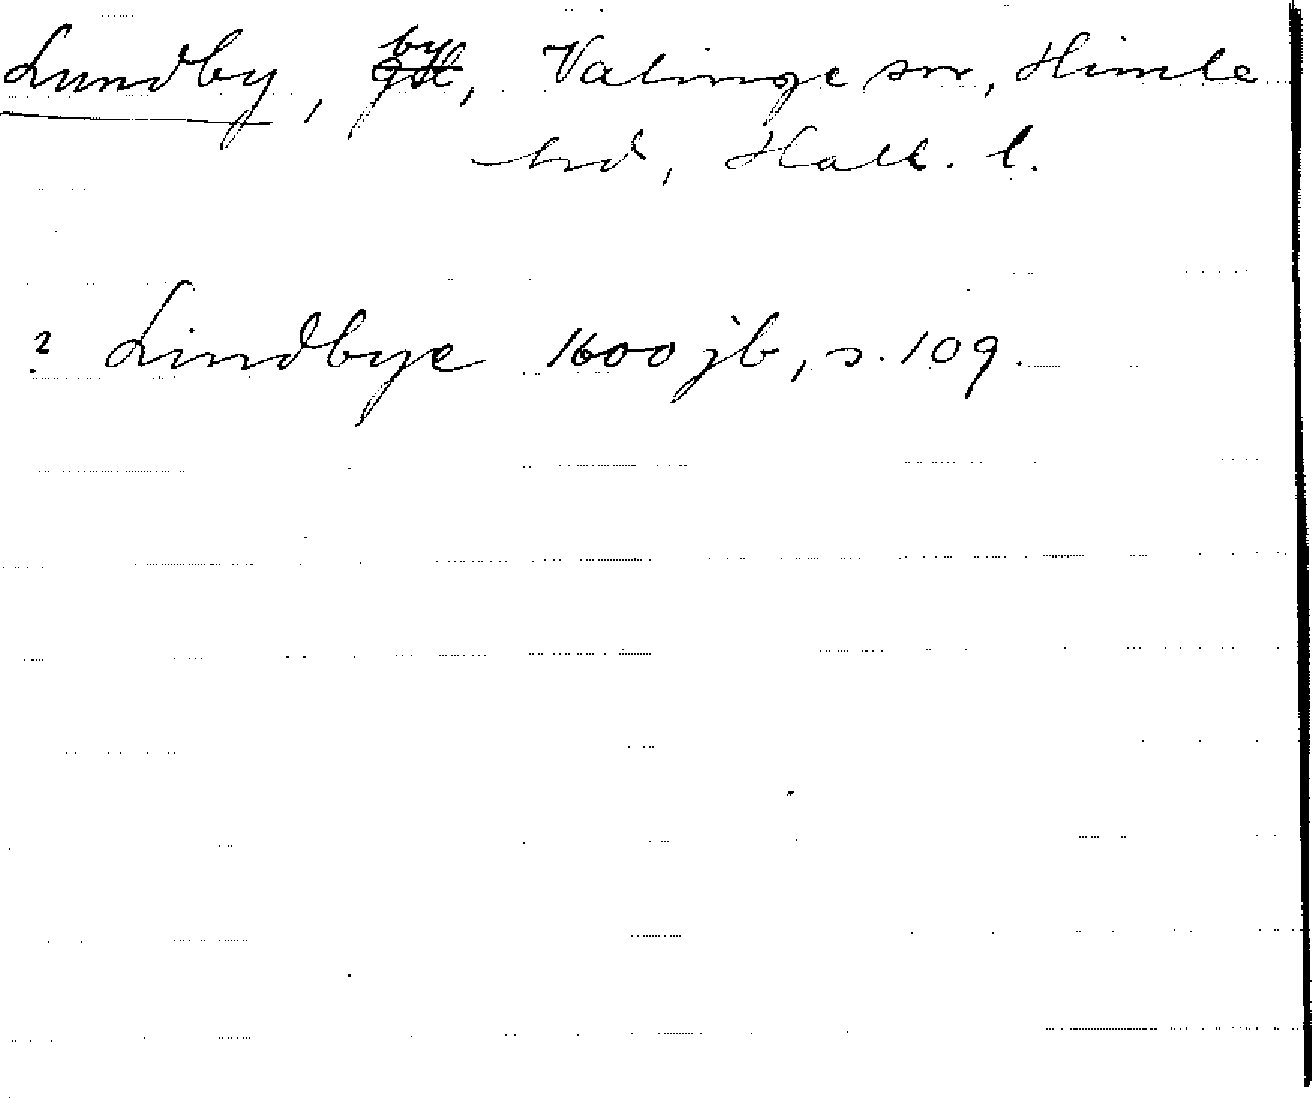 Lundby, by, Valinge sn, Himle
hd, Hall. l.
? Lindbye 1600 jb, s. 109.